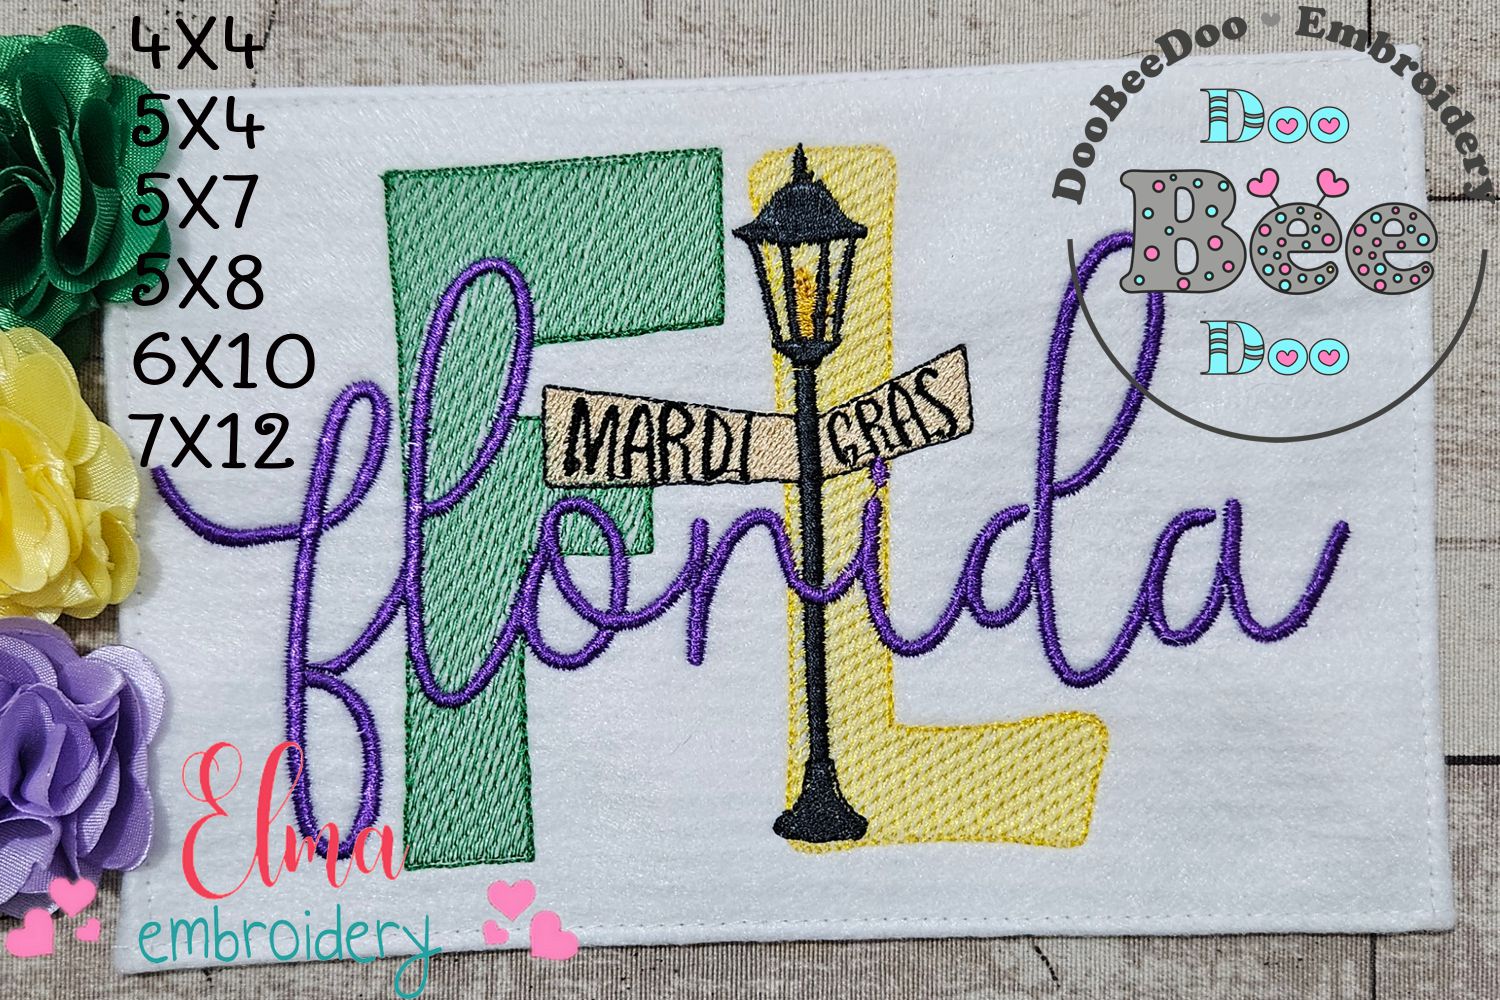 4X4
5X4
5X7
5X8
6X10
7X12
DooBeeDoo Embroidery
Doo
Bee
Doo
FL
MARDI GRAS
florida
Elma
embroidery